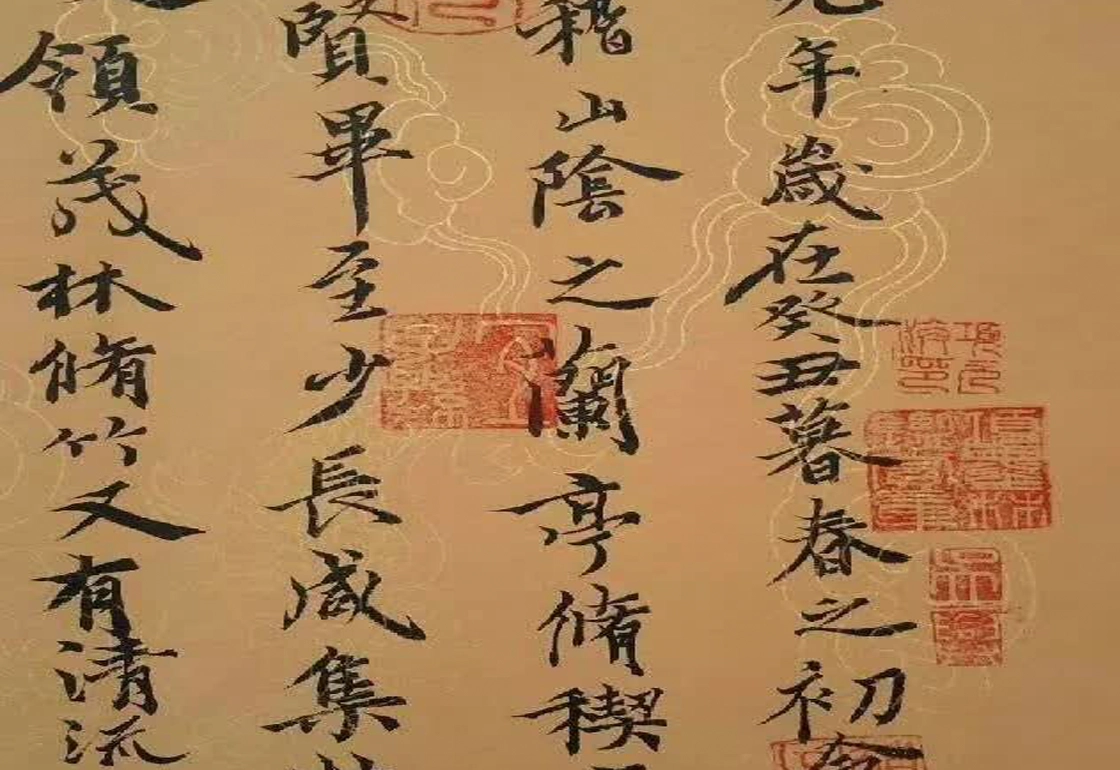 年歲在癸丑暮春之初會
稽山陰之蘭亭脩稧
賢畢至少長咸集
領茂林脩竹又有清流